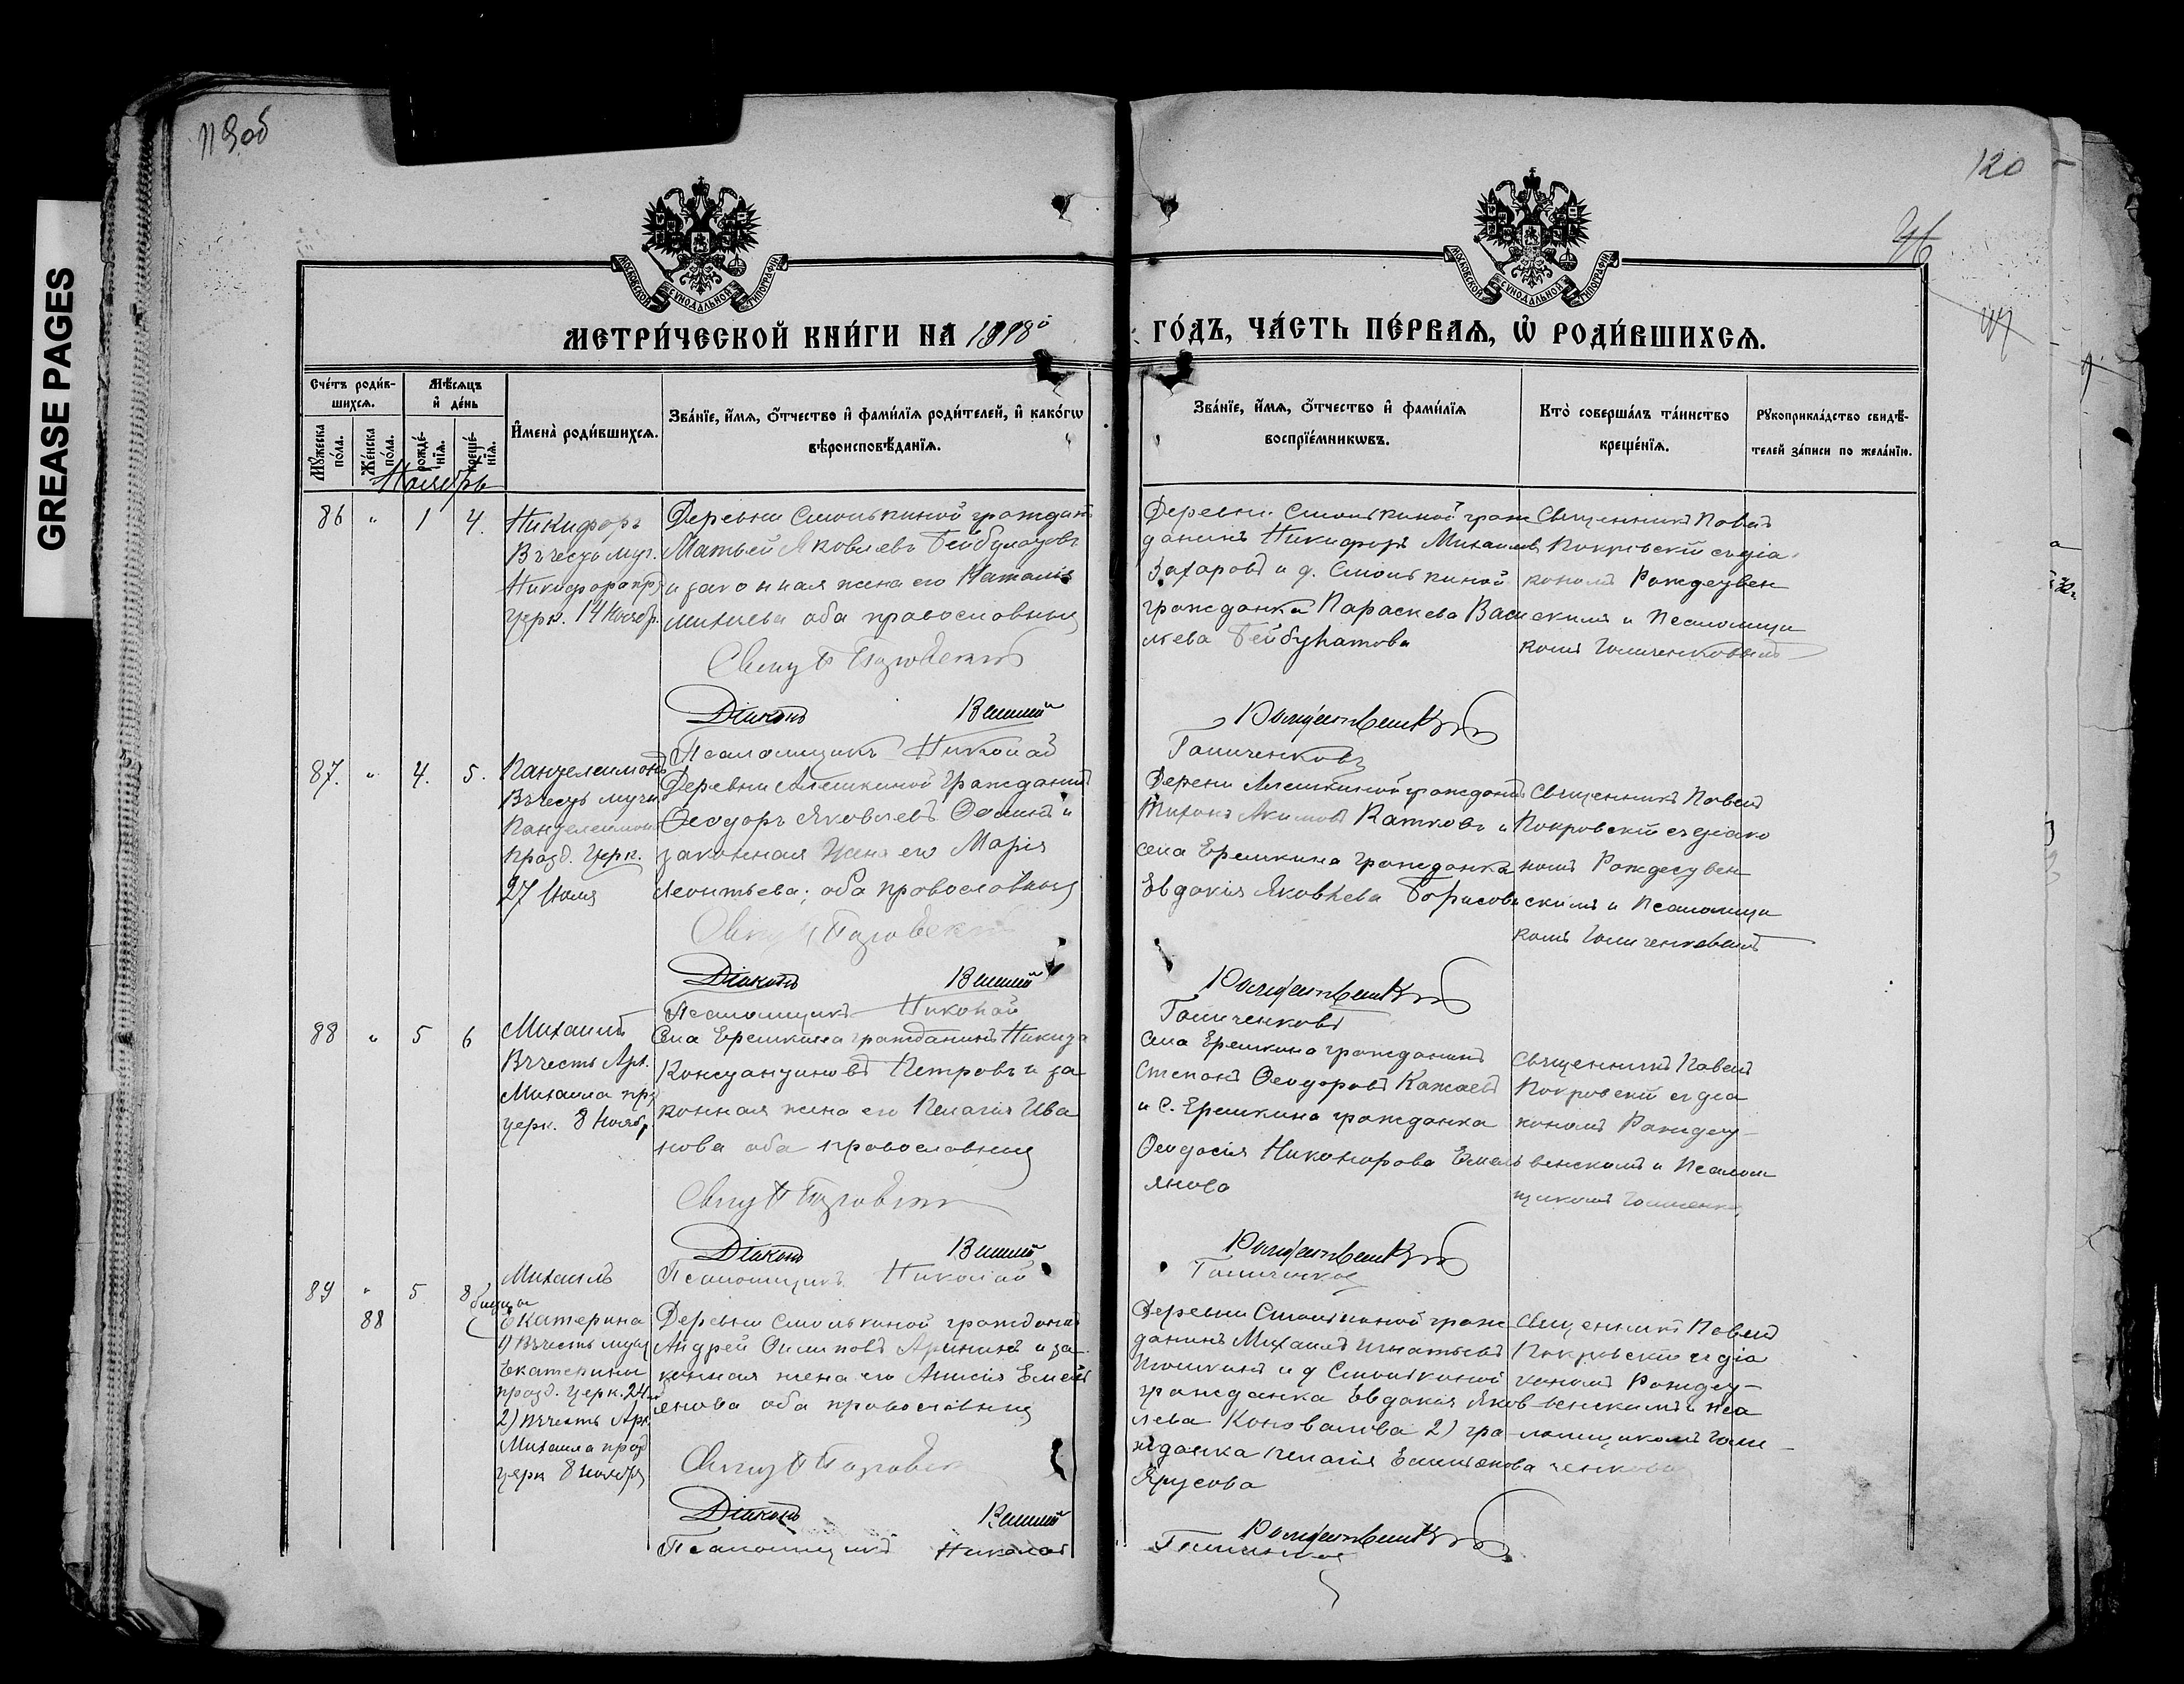 GREASE PAGES
119об
120
МОСКОВСКОЙ СѴНОДАЛЬНОЙ ТИПОГРАФІИ
МОСКОВСКОЙ СѴНОДАЛЬНОЙ ТИПОГРАФІИ
МЕТРИ́ЧЕСКОЙ КНИ́ГИ НА 1918й
ГО́ДЪ, ЧА́СТЬ ПЕ́РВАѦ, Ѡ҆ РОДИ́ВШИХСѦ.
Сче́тъ роди́в-
шихсѧ.
Мꙋ́жеска по́ла.
Же́нска по́ла.
Мѣ́сѧцъ
и҆ де́нь
рожде́-
нїѧ.
креще́-
нїѧ.
И҆мена̀ роди́вшихсѧ.
Зва́нїе, и҆́мѧ, ѻ҆́тчество и҆ фами́лїѧ роди́телей, и҆ како́гѡ
вѣроисповѣ́данїѧ.
Зва́нїе, и҆́мѧ, ѻ҆́тчество и҆ фами́лїѧ
воспрїе́мникѡвъ.
Кто̀ соверша́лъ та́инство
креще́нїѧ.
Рꙋкоприкла́дство свидѣ́-
телей за́писи по жела́нїю.
Ноябрь
86 " 1 4.
Никифоръ
Въ честь муч.
Никифора пр.
церк. 14 Ноябр.
Деревни Смолькиной гражданинъ
Матвей Яковлевъ Бейбулатовъ
и законная жена его Наталія
оба православные
Свящ П Покровскій
Діаконъ
Псаломщикъ Николай
Деревни Смолькиной граж
данинъ Никифоръ Михаиловъ
Захаровъ и д. Смолькиной
гражданка Параскева Васи
льева Бейбулатова
Голиченковъ
Священникъ Павелъ
Покровскій съ діа
кономъ Рождествен
скимъ и Псаломщи
комъ Голиченковымъ
87. " 4. 5.
Пантелеимонъ
Въ честь муч.
Пантелеимона
празд. церк.
27 Июля
Деревни Алешкиной Гражданинъ
Ѳеодоръ Яковлевъ Осинъ и
законная жена его Марія
Леонтьева; оба православные
Свящ П Покровскій
Діаконъ
Псаломщикъ Николай
Деревни Алешкиной гражданинъ
Тихонъ Акимовъ Катковъ и
села Еремкина гражданка
Евдокія Яковлева Борисова
Голиченковъ
Священникъ Павелъ
Покровскій съ діако
номъ Рождествен
скимъ и Псаломщи
комъ Голиченковымъ
88 " 5 6
Михаилъ
Въ честь Арх.
Михаила пр.
церк. 8 Ноябр.
Села Еремкина гражданинъ Никита
Константиновъ Петровъ и за
конная жена его Пелагія Ива
нова оба православные
Свящ П Покровскій
Діаконъ
Псаломщикъ Николай
Села Еремкина гражданинъ
Степанъ Ѳеодоровъ Катаевъ
и С. Еремкина гражданка
Ѳеодосія Никонорова Емель
янова
Голиченковъ
Священникъ Павелъ
Покровскій съ діа
кономъ Рождест
венскимъ и Псалом
щикомъ Голиченк.
89 " 5 8
88
Михаилъ
близнецы
Екатерина
1) Въ честь муч
Екатерины
празд. церк. 24
2) въ честь Арх
Михаила празд
церк 8 ноября
Деревни Смолькиной гражданинъ
Андрей Осиповъ Арининъ и за
конная жена его Анисія Емель
янова оба православные
Свящ П Покровскій
Діаконъ
Псаломщикъ Николай
Деревни Смолькиной граж
данинъ Михаилъ Игнатьевъ
и д Смолькиной
гражданка Евдокія Яков
лева Коновалова 2) гра
жданка Пелагія Емельянова
Ярусова
Голиченковъ
Священникъ Павелъ
Покровскій съ діа
кономъ Рождест
венскимъ и пса
ломщикомъ Голи
ченковымъ